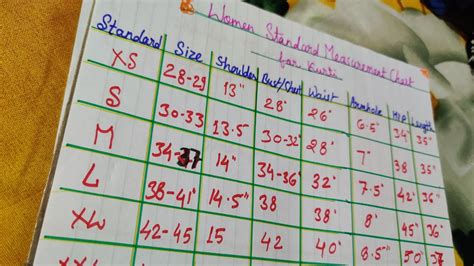 Women Standard Measurement Chart
for Kurti
Standard Size Shoulder Bust/Chest Waist Armhole HIP Length
XS 28-29 13" 28" 26" 6.5" 34" 35"
S 30-33 13.5 30-32" 28" 7" 38 35"
M 34-37 14" 34-36" 32" 7.5" 42" 36"
L 38-41" 14.5" 38 38" 8" 45" 36"
XL 42-45 15 42 40" 8.5" 50" 36
XXL